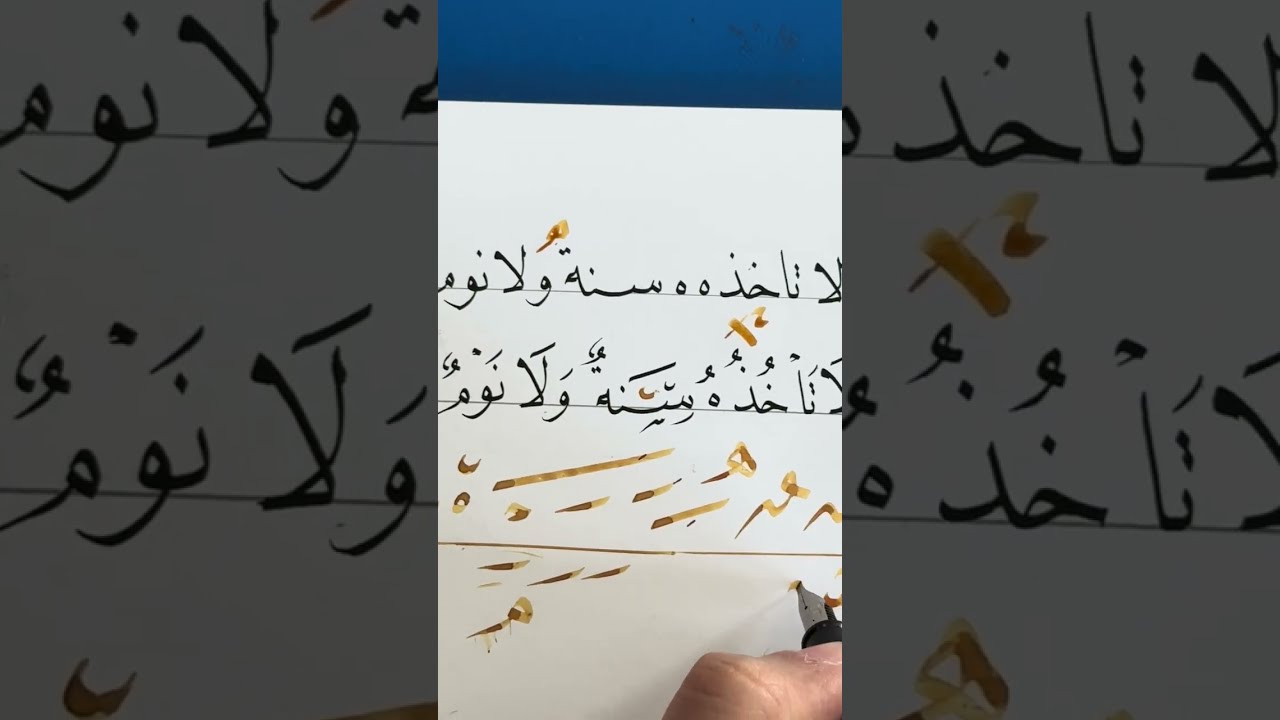 لا تاخذه ه سنة ولا نوم
لَا تَاْخُذُهُ سِنَةٌ وَلَا نَوْمٌ